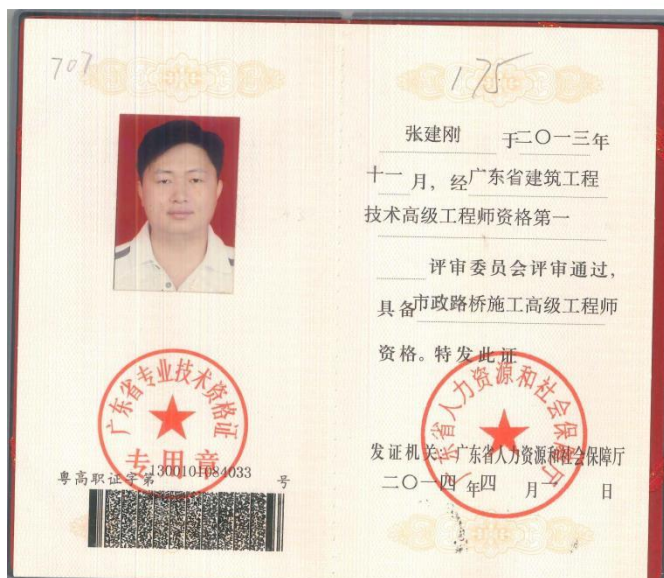 707
广东省专业技术资格证
专用章
粤高职证字第1300101084033号
175
张建刚 于二〇一三年
十一月，经广东省建筑工程
技术高级工程师资格第一
评审委员会评审通过，
具备市政路桥施工高级工程师
资格。特发此证
广东省人力资源和社会保障厅
发证机关：广东省人力资源和社会保障厅
二〇一四年四月一日